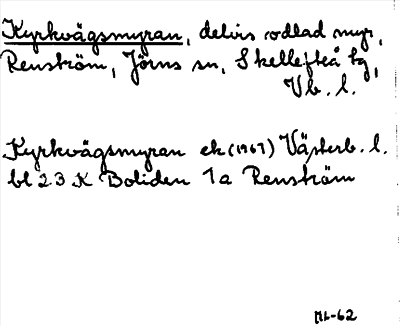 Kyrkvägsmyran, delvis odlad myr,
Renström, Jörns sn, Skellefteå tg,
Vb. l.
Kyrkvägsmyran ek (1967) Västerb. l.
bl 23 K Boliden 1a Renström
ML-62